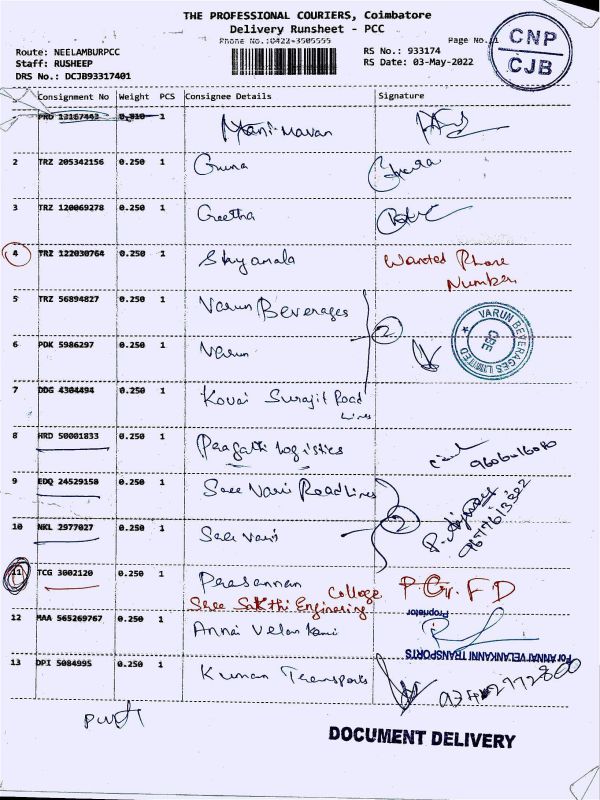 THE PROFESSIONAL COURIERS, Coimbatore
Delivery Runsheet - PCC
Phone No.:0422-3505555
Page No. 1
Route: NEELAMBURPCC
Staff: RUSHEEP
DRS No.: DCJB93317401
RS No.: 933174
RS Date: 03-May-2022
CNP
CJB
Consignment No Weight PCS Consignee Details Signature
PRO 13167443 0.310 1 Mani maran
2 TRZ 205342156 0.250 1 Guna
3 TRZ 120069278 0.250 1 Geetha
4 TRZ 122030764 0.250 1 Shyamala Wanted Phone
Number
5 TRZ 56894827 0.250 1 Varun Beverages
2
VARUN BEVERAGES LIMITED
CBE
6 PDK 5986297 0.250 1 Varun
7 DDG 4304494 0.250 1 Kovai Surajit Road
Lines
8 HRD 50001833 0.250 1 Pragathi Logistics
9 EDQ 24529150 0.250 1 Sree Vari RoadLines
2
10 NKL 2977027 0.250 1 Sree Vari
11 TCG 3002120 0.250 1 Prasannan
Sree Sakthi Enginering College
12 MAA 565269767 0.250 1 Annai Velankani
Proprietor
For ANNAI VELANKANNI TRANSPORTS
13 DPI 5084995 0.250 1 Kumaran Transports
DOCUMENT DELIVERY